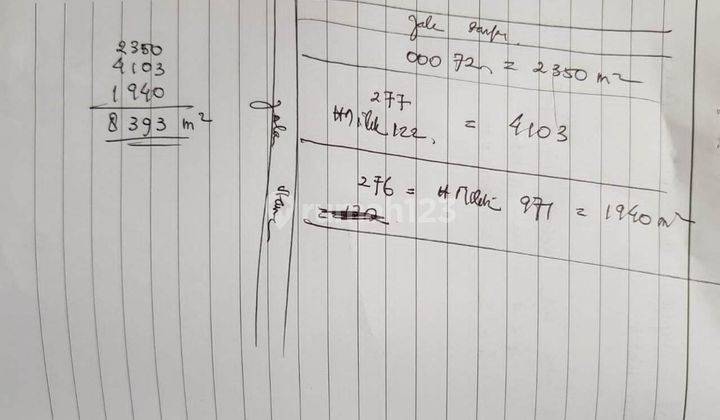 2350
4103
1940
8 393 m²
Jala
000 72, = 2350 m²
277
HMilik 122, = 4103
276 = HMilik 971 = 1940 m²
rumah123